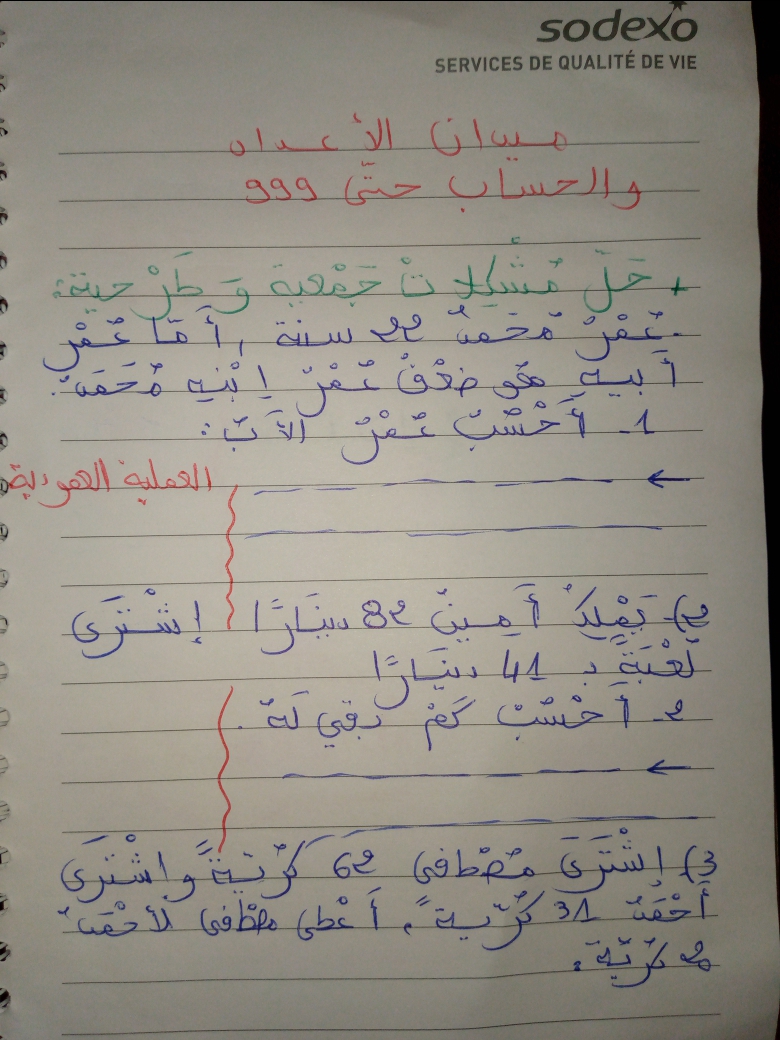 sodexo
SERVICES DE QUALITÉ DE VIE
ميدان الأعداد
والحساب حتّى 999
+ حَلّ مُشْكِلاتْ جَمْعية وَ طَرْحية:
- عُمْرُ مُحَمدٌ 22 سنة , أَمّا عُمْرُ
أَبيهِ هُو ضِعْفُ عُمْرُ اِبْنِهِ مُحَمَدْ.
1- أَحْسُبُ عُمْرُ الأَبّ:
العملية العمودية
2)- يَمْلِكُ أَمِينْ 82 دينَارًا إشْتَرَى
لُعْبَةً بـ 41 دينَارًا
2- أَحْسُبُ كَمْ بَقِي لَهُ.
3) إشْتَرَى مُصْطفى 62 كُرَيّةً واشْتَرَى
أَحْمَدْ 31 كُرَيّةً. أَعْطى مصْطفى لأحْمَدْ
2 كُرَيّة.